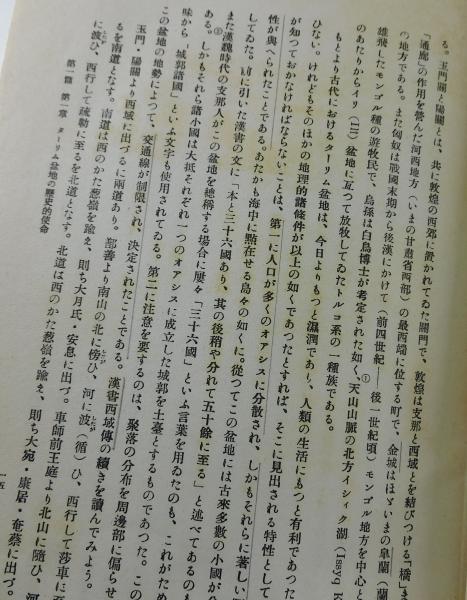 る。玉門關と陽關とは、共に敦煌の西郊に置かれてゐた關門で、敦煌は支那と西域とを結びつける「橋」ま
「通廊」の作用を營んだ河西地方（いまの甘肅省西部）の最西端に位する町で、金城はほゞいまの皐蘭（蘭
の地方である。また匈奴は戰國末期から後漢にかけて（前四世紀—後一世紀頃）モンゴル地方を中心と
雄飛したモンゴル種の游牧民で、烏孫は白鳥博士が考定された如く、①天山山脈の北方イシィク湖（Issyq K
のあたりからイリ（ ）盆地に亙つて放牧してゐたトルコ系の一種族である。
もとより古代におけるターリム盆地は、今日よりもつと濕潤であり、人類の生活にもつと有利であつた
ひない。けれどもそのほかの地理的諸條件が以上の如くであつたとすれば、そこに見出される特性として
が知つておかなければならないことは、第一に人口が多くのオアシスに分散され、しかもそれらに著しい
性が與へられたことである。あたかも海中に點在せる島々の如くに。從つてこの盆地には古來多數の小國が分
してゐた。前に引いた漢書の文に「本と三十六國あり、其の後稍や分れて五十餘に至る」と述べてゐるのも
また漢魏時代の支那人がこの盆地を總稱する場合に屢々「三十六國」といふ言葉を用ゐたのも、これがため
ある。②しかもそれら諸小國は大抵それぞれ一つのオアシスに成立した城郭を土臺とするものであつた。この
味から「城郭諸國」といふ文字も使用されてゐる。第二に注意を要するのは、聚落の分布を周邊部に偏らせ
この盆地の地勢によつて、交通線が制限され、決定されたことである。漢書西域傳の續きを讀んでみよう。
玉門・陽關より西域に出づるに兩道あり。鄯善より南山の北に傍ひ、河に波(したが)（循）ひ、西行して莎車に至
るを南道となす。南道は西のかた葱嶺を踰え、則ち大月氏・安息に出づ。車師前王庭より北山に隨ひ、河
に波ひ、西行して疏勒に至るを北道となす。北道は西のかた葱嶺を踰え、則ち大宛・康居・奄蔡に出づ。
第一篇 第一章 ターリム盆地の歷史的使命
一五